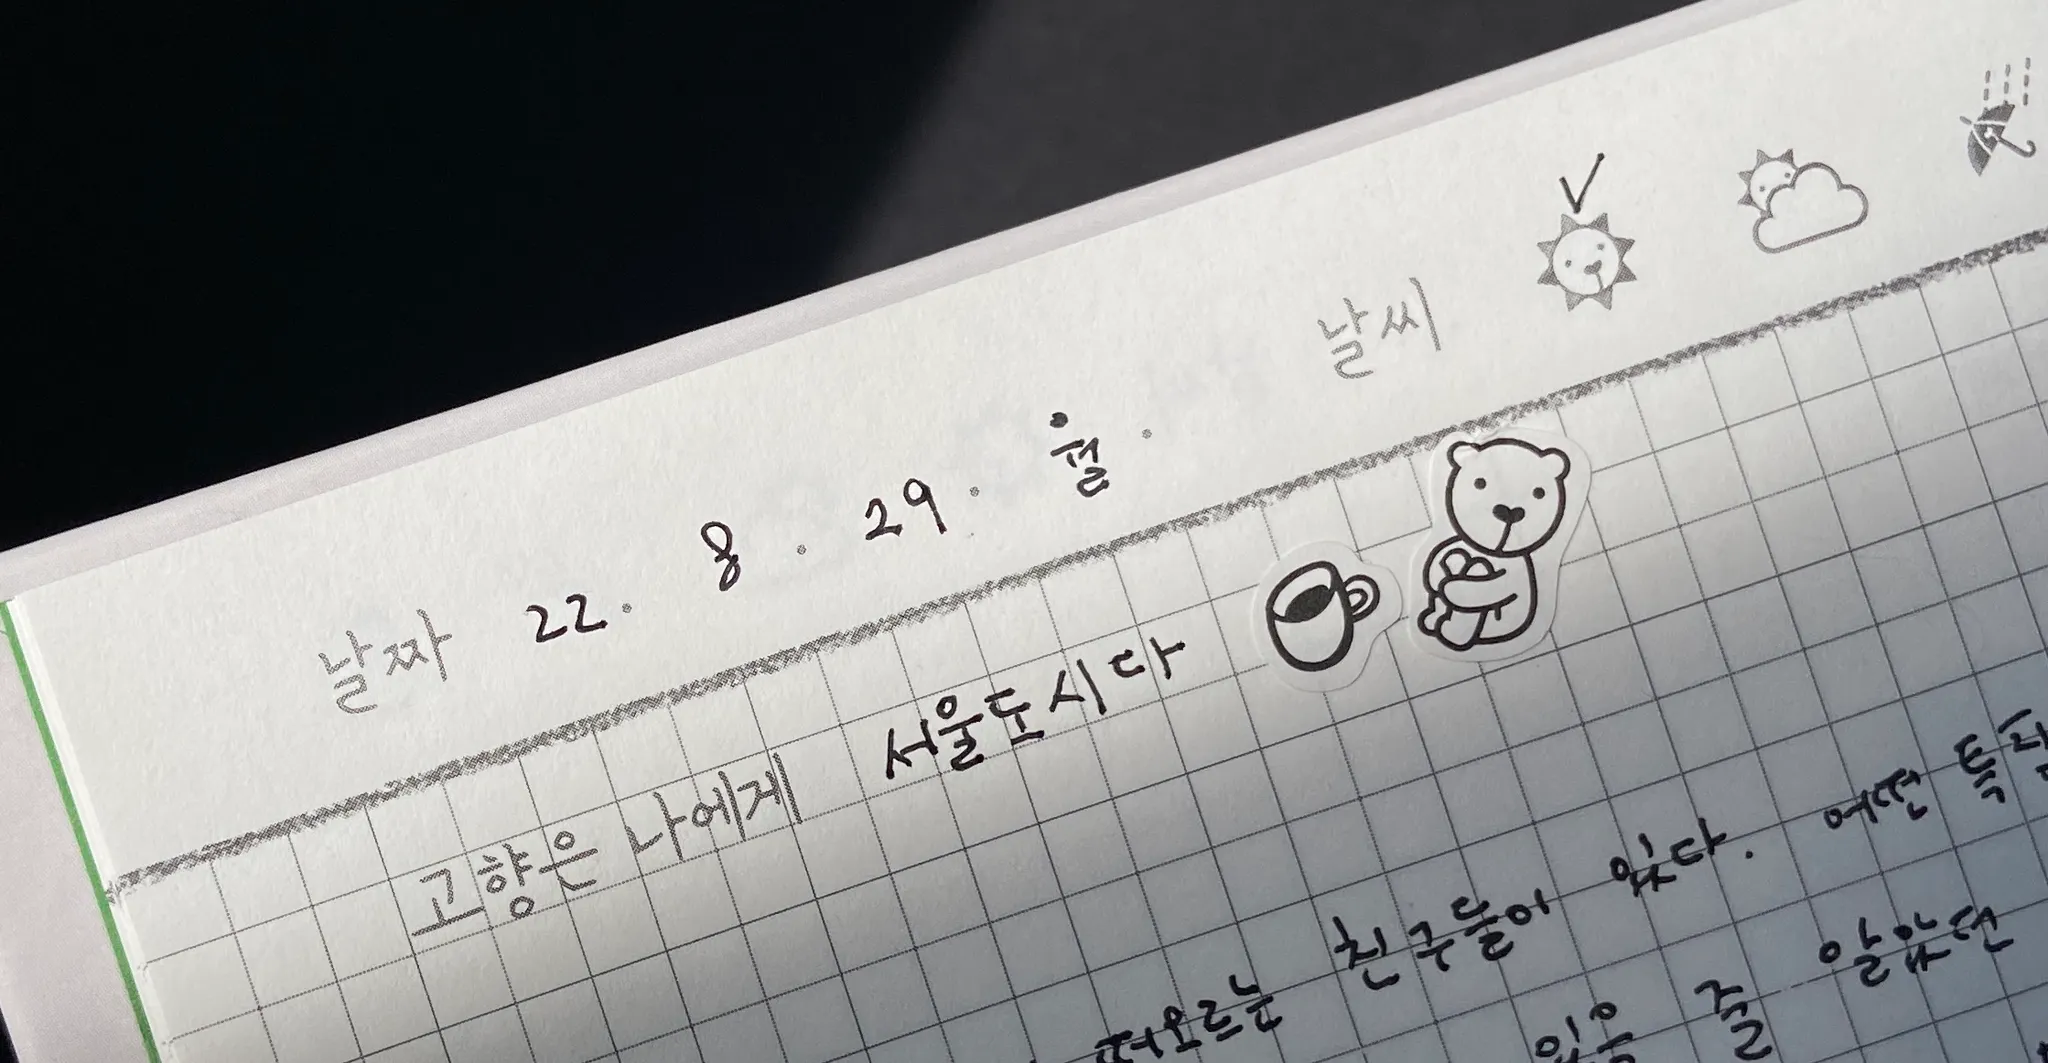 날짜 22. 8. 29. 월. 날씨
고향은 나에게 서울도시다
떠오르는 친구들이 있다. 어떤
있을 줄 알았던